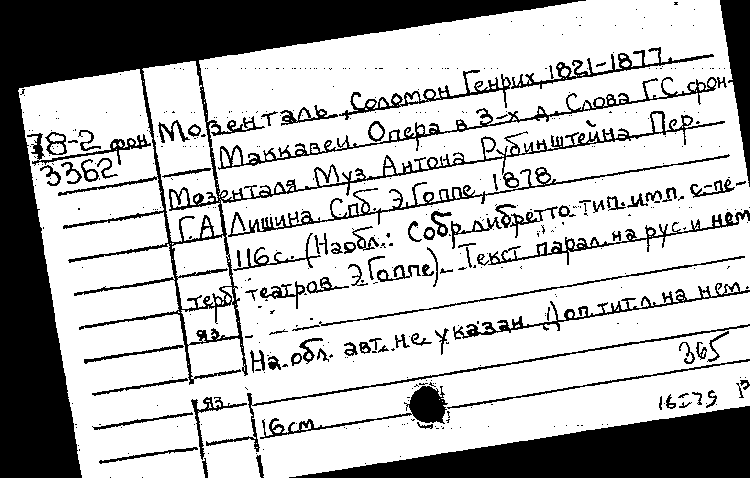 78-2 фон Мозенталь, Соломон Генрих, 1821-1877.
3362 Маккавеи. Опера в 3-х д. Слова Г.С. фон-
Мозенталя. Муз. Антона Рубинштейна. Пер.
Г.А. Лишина. Спб., Э. Гоппе, 1878.
116 с. (На обл.: Собр. либретто тип. имп. с-пе-
терб. театров Э. Гоппе). Текст парал. на рус. и нем.
яз.
На обл. авт. не указан. Доп. тит. л. на нем.
яз.
365
16 см.